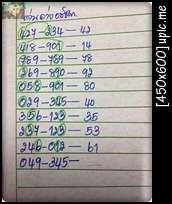 427-234 — 42
418-901 — 14
969-789 — 78
269-890 — 92
058-901 — 80
029-345 — 40
356-123 — 35
237-123 — 53
246-012 — 61
049-345 —
[450x600] upic.me